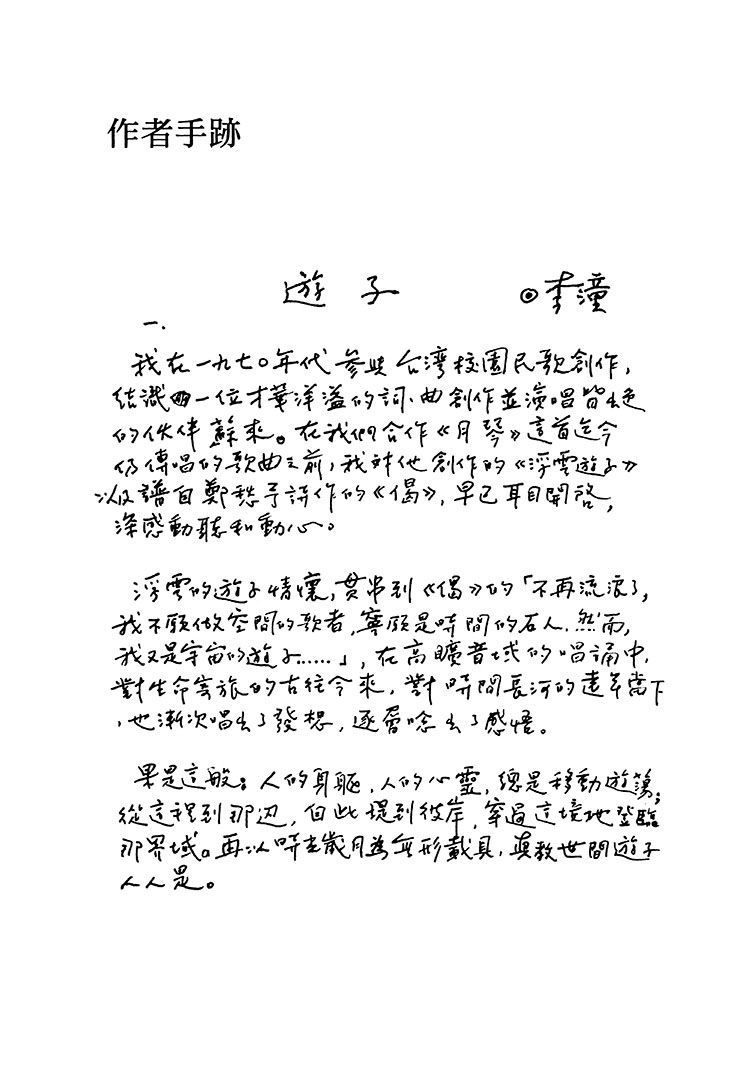 作者手跡
遊子 ◎李潼
一.
我在一九七○年代參與台灣校園民歌創作,
結識一位才華洋溢的詞、曲創作並演唱皆出色
的伙伴蘇來。在我們合作《月琴》這首迄今
仍傳唱的歌曲之前,我對他創作的《浮雲遊子》
以及譜自鄭愁予詩作的《偈》,早已耳目開啓,
深感動聽和動心。
浮雲的遊子情懷,貫串到《偈》的「不再流浪了,
我不願做空間的歌者,寧願是時間的石人.然而,
我又是宇宙的遊子……」,在高曠音域的唱誦中,
對生命客旅的古往今來,對時間長河的遠年當下
,也漸次唱出了發想,逐層唸出了感悟。
果是這般:人的身軀,人的心靈,總是移動遊蕩;
從這裡到那边,自此堤到彼岸,穿過這境地登臨
那界域。再以時光歲月為無形載具,真教世間遊子
人人是。